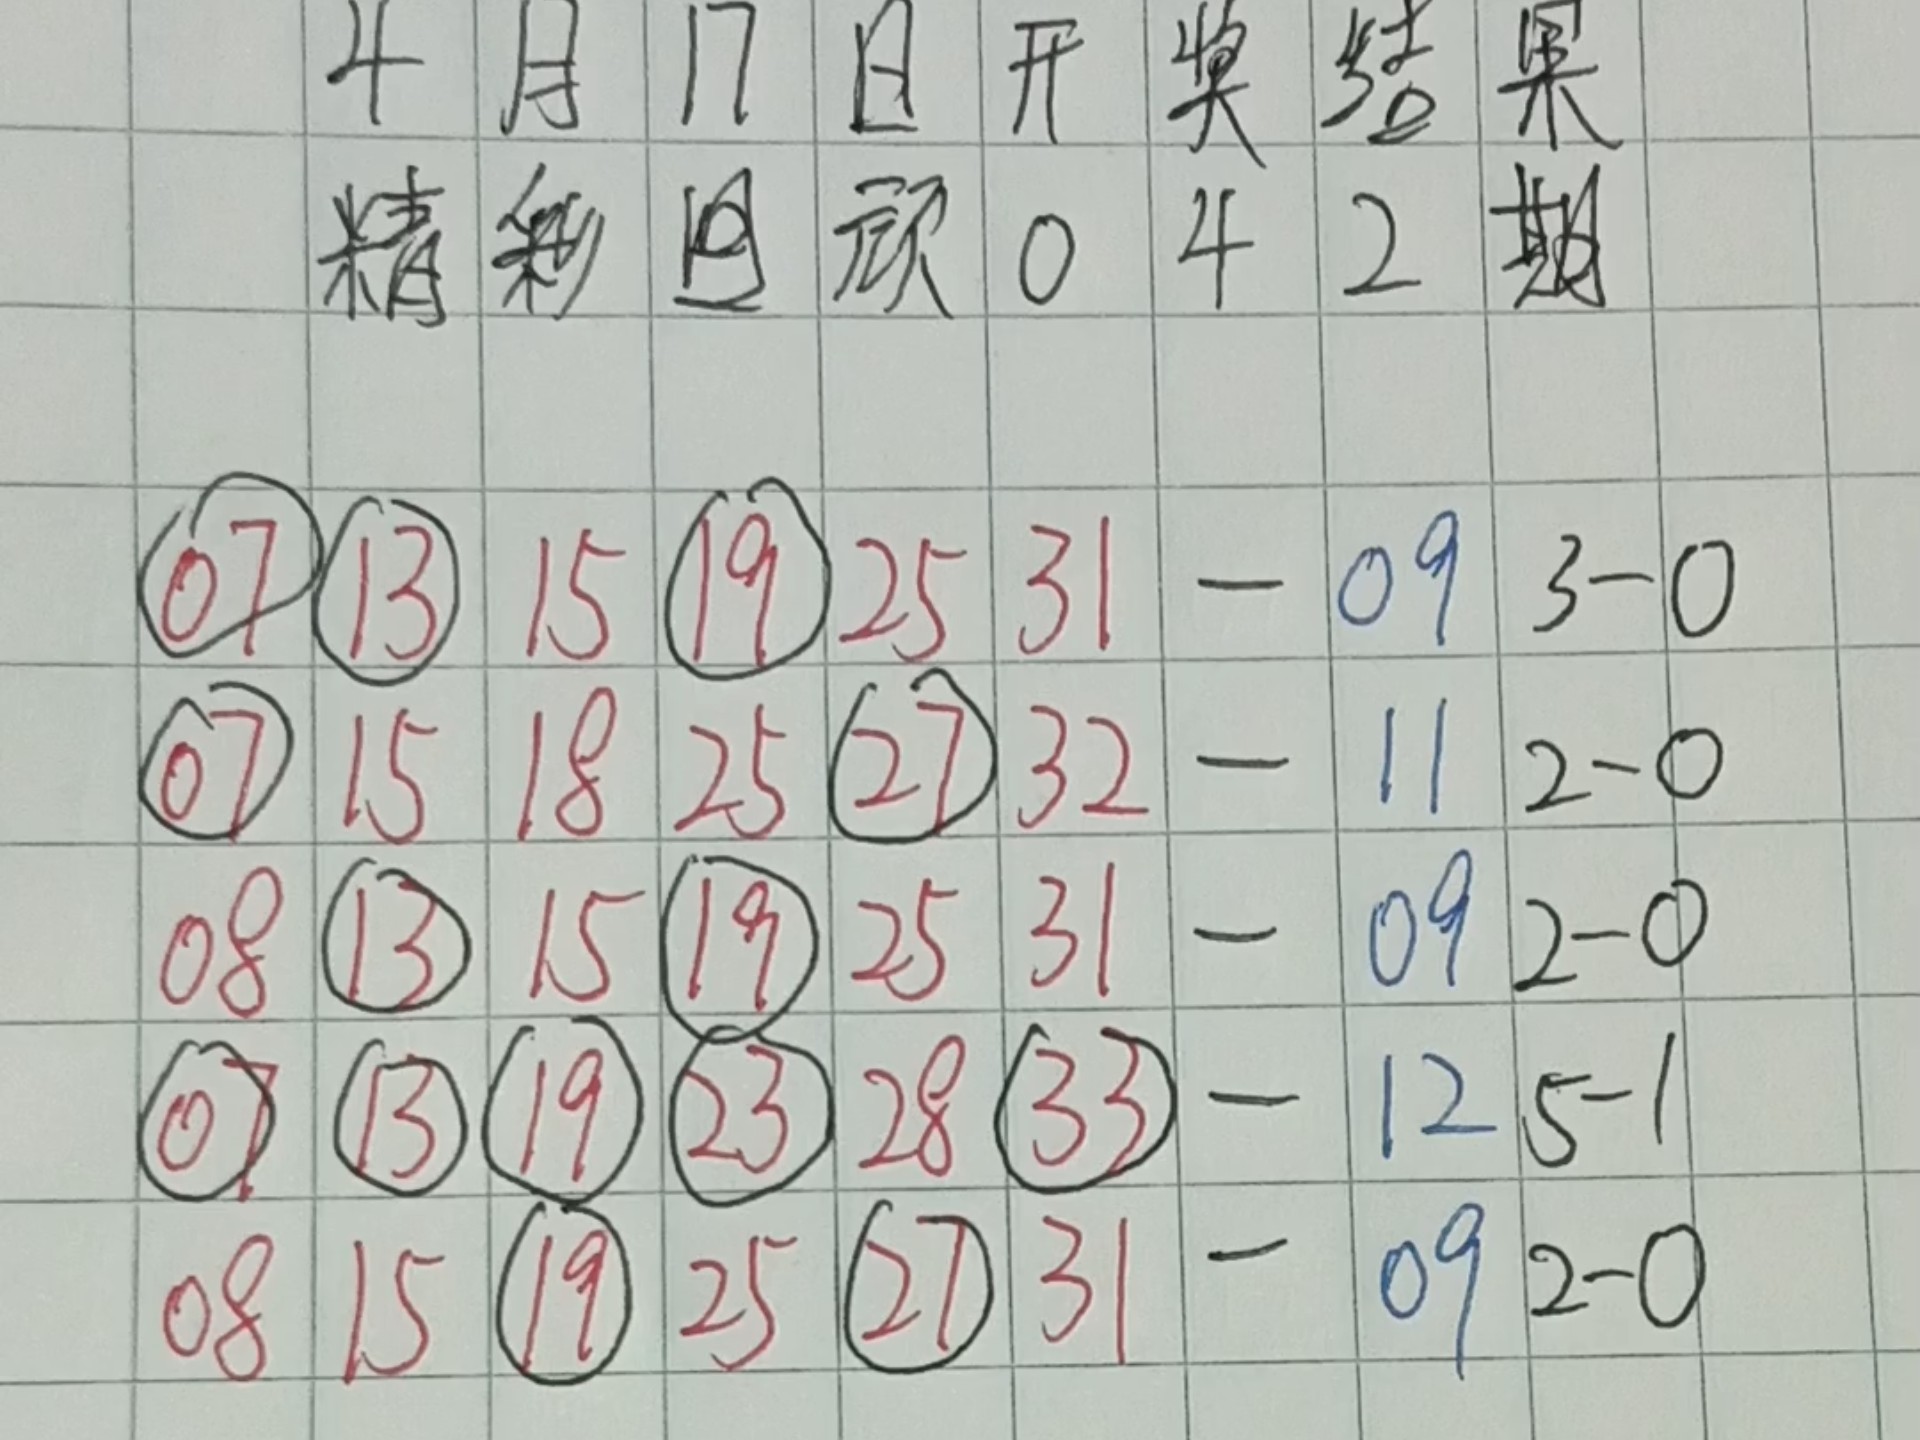 4月17日开奖结果
精彩回顾042期
07 13 15 19 25 31 — 09 3-0
07 15 18 25 27 32 — 11 2-0
08 13 15 19 25 31 — 09 2-0
07 13 19 23 28 33 — 12 5-1
08 15 19 25 27 31 — 09 2-0